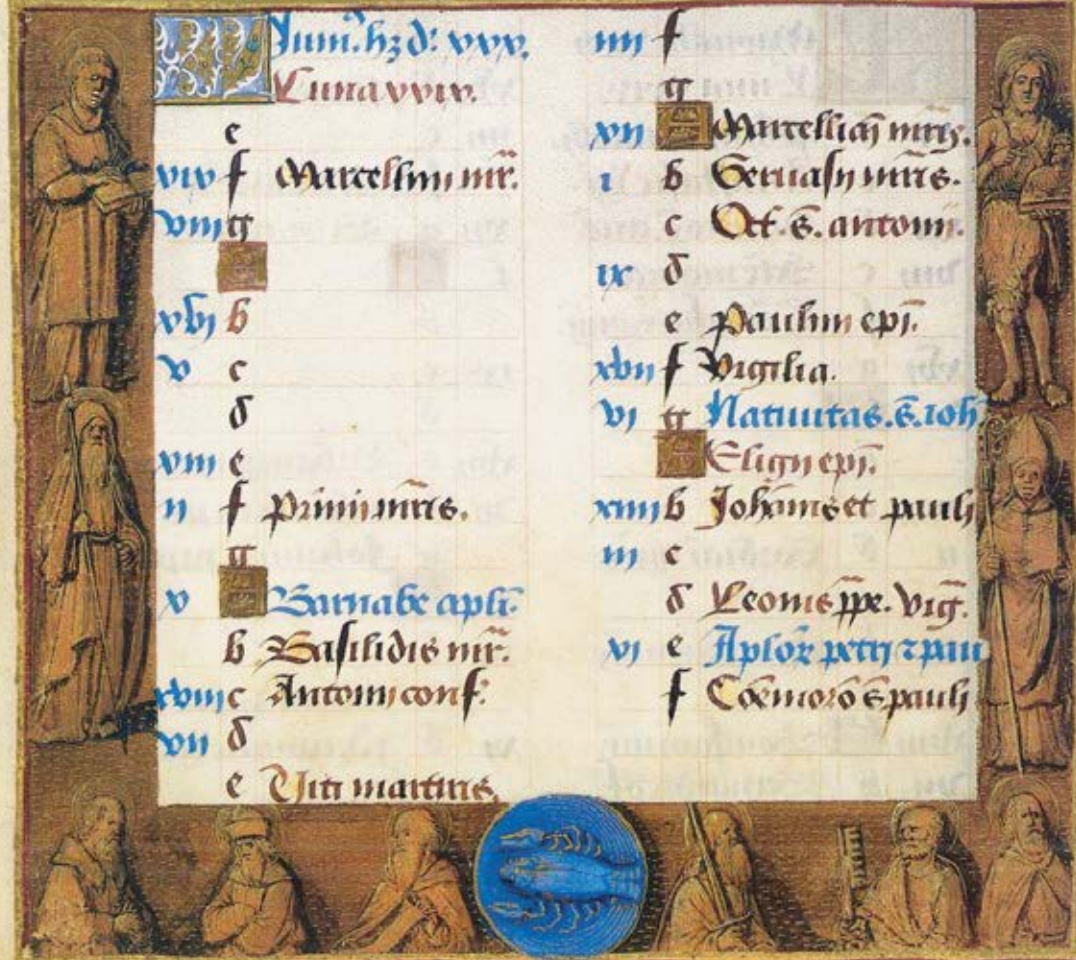 KL Junius. hz d: xxx.
Luna xxix.
e
xix f Marcellini mr.
viii g
A
xvi b
v c
d
xiii e
ii f Primi mris.
g
v A Barnabe apli.
b Basilidis mr.
xviii c Antonii conf.
vii d
e Viti martiris.
iiii f
g
xii A Marcelliani mris.
i b Geruasii mris.
c Oct. s. antonii.
ix d
e Paulini epi.
xvii f Vigilia.
vi g Natiuitas. s. ioh
A Eligii epi.
xiiii b Johannis et pauli
iii c
d Leonis ppe. Vig.
vi e Aplor petri z pau
f Comoro s pauli